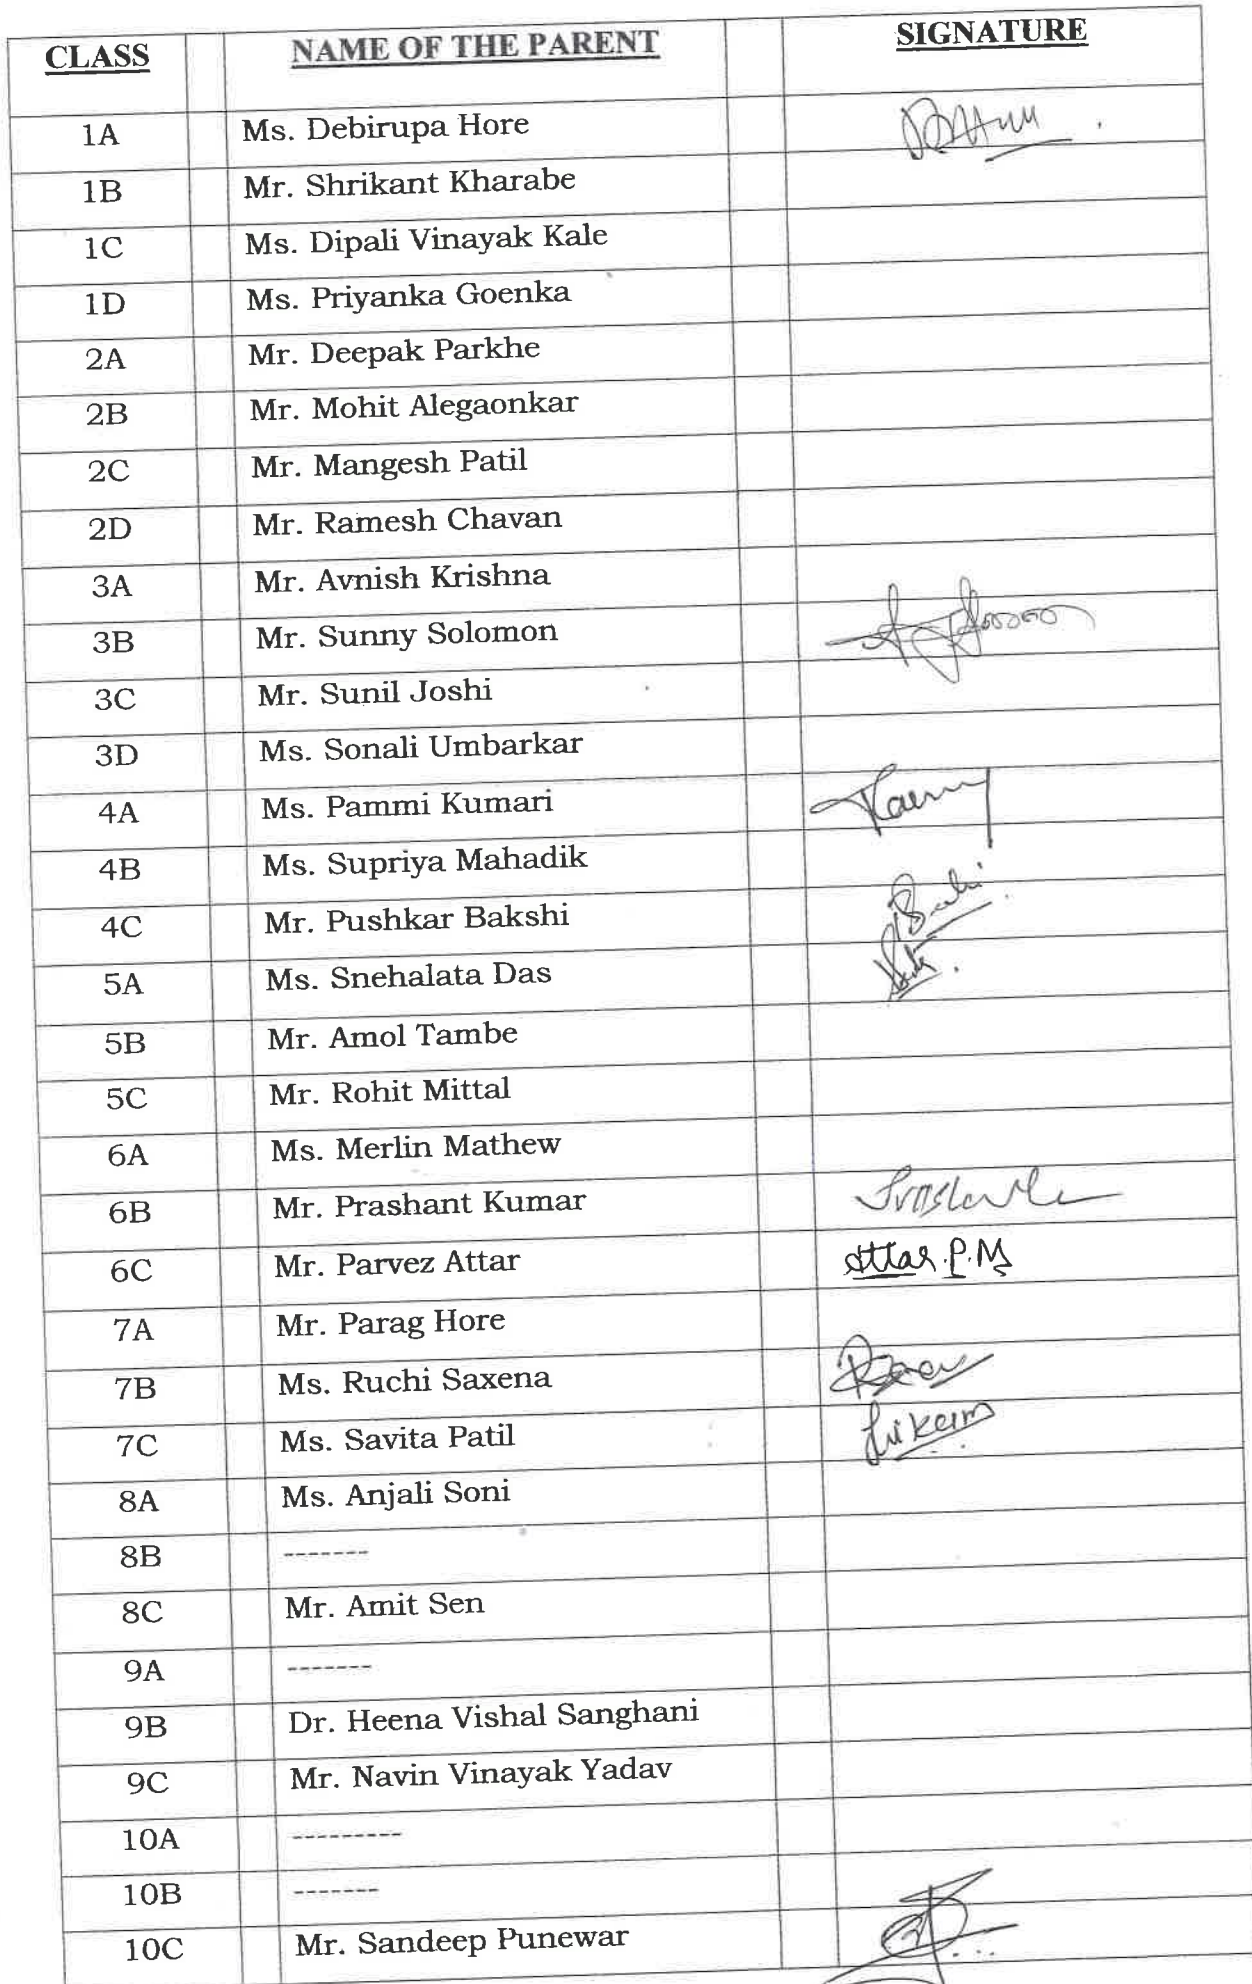 CLASS NAME OF THE PARENT SIGNATURE
1A Ms. Debirupa Hore
1B Mr. Shrikant Kharabe
1C Ms. Dipali Vinayak Kale
1D Ms. Priyanka Goenka
2A Mr. Deepak Parkhe
2B Mr. Mohit Alegaonkar
2C Mr. Mangesh Patil
2D Mr. Ramesh Chavan
3A Mr. Avnish Krishna
3B Mr. Sunny Solomon
3C Mr. Sunil Joshi
3D Ms. Sonali Umbarkar
4A Ms. Pammi Kumari
4B Ms. Supriya Mahadik
4C Mr. Pushkar Bakshi
5A Ms. Snehalata Das
5B Mr. Amol Tambe
5C Mr. Rohit Mittal
6A Ms. Merlin Mathew
6B Mr. Prashant Kumar
6C Mr. Parvez Attar Attar.P.M
7A Mr. Parag Hore
7B Ms. Ruchi Saxena
7C Ms. Savita Patil
8A Ms. Anjali Soni
8B -------
8C Mr. Amit Sen
9A -------
9B Dr. Heena Vishal Sanghani
9C Mr. Navin Vinayak Yadav
10A ---------
10B -------
10C Mr. Sandeep Punewar